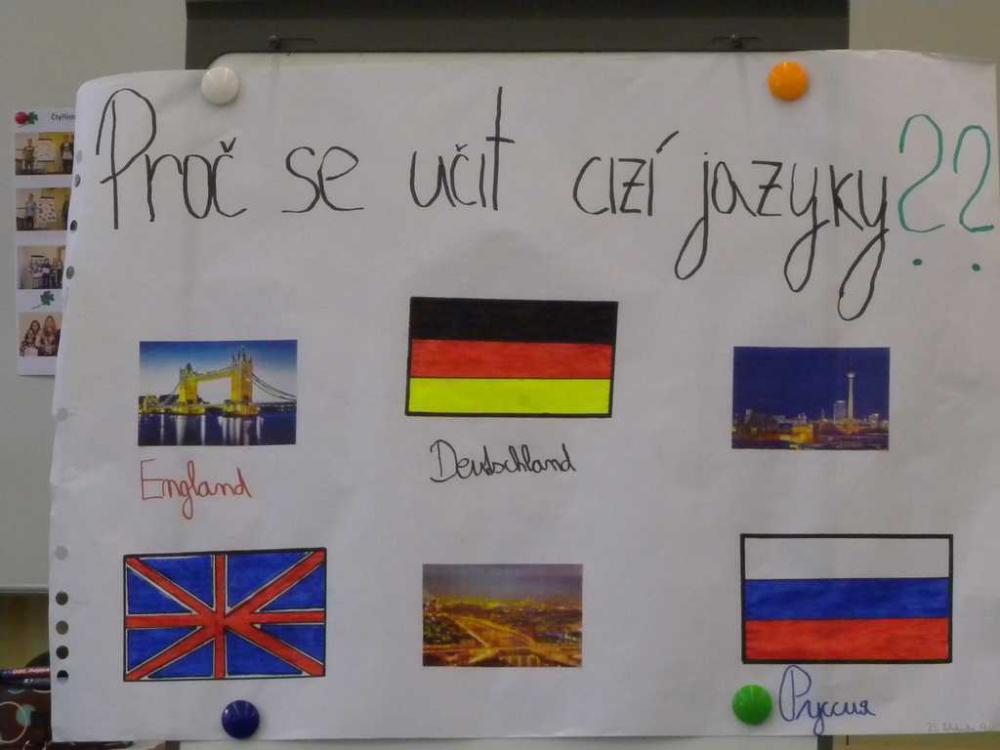 Proč se učit cizí jazyky??
Deutschland
England
Руссия